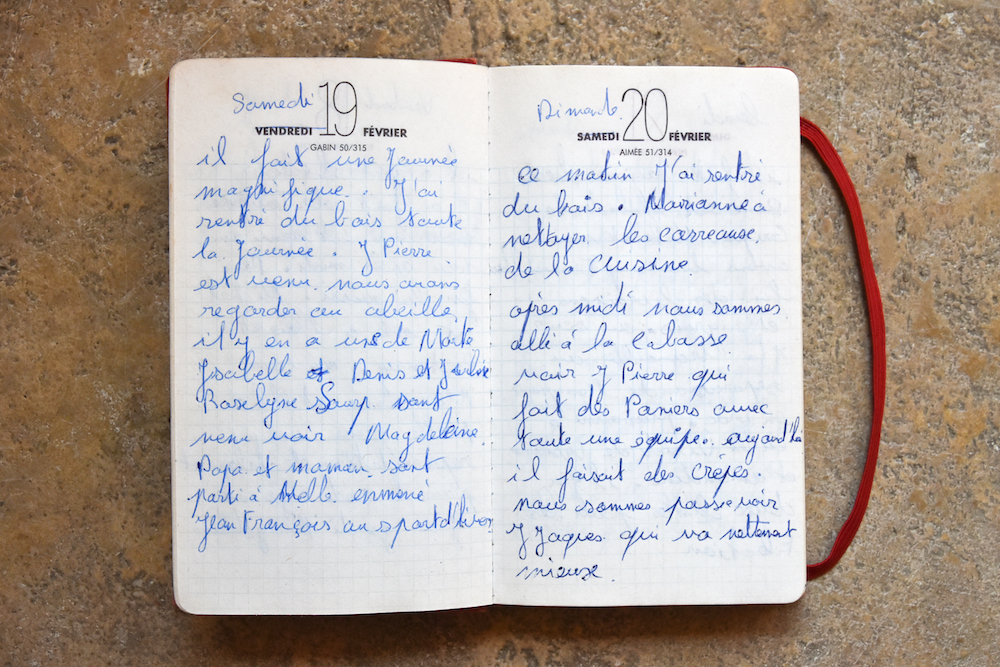 Samedi 19
VENDREDI FÉVRIER
GABIN 50/315
il fait une Journée
magnifique. J'ai
rentré du bois toute
la Journée. J Pierre
est venu. nous avons
regarder au abeille
il y en a une de Morte
Ysabelle et Denis et
Roselyne sont
venu voir Magdeleine.
Papa et maman sont
parti à Melle emmené
Jean François au sport d'hiver
Dimanche 20
SAMEDI FÉVRIER
AIMÉE 51/314
ce matin J'ai rentré
du bois. Marianne à
nettoyer les carreause
de la Cuisine
après midi nous sommes
allé à la Cabasse
voir J Pierre qui
fait des Paniers avec
toute une équipe. aujourd'hu
il faisait des crêpes.
nous sommes passe voir
J Jaques qui va nettement
mieuse